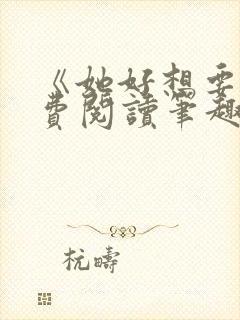 《她好想要
費閱讀筆趣
杭疇